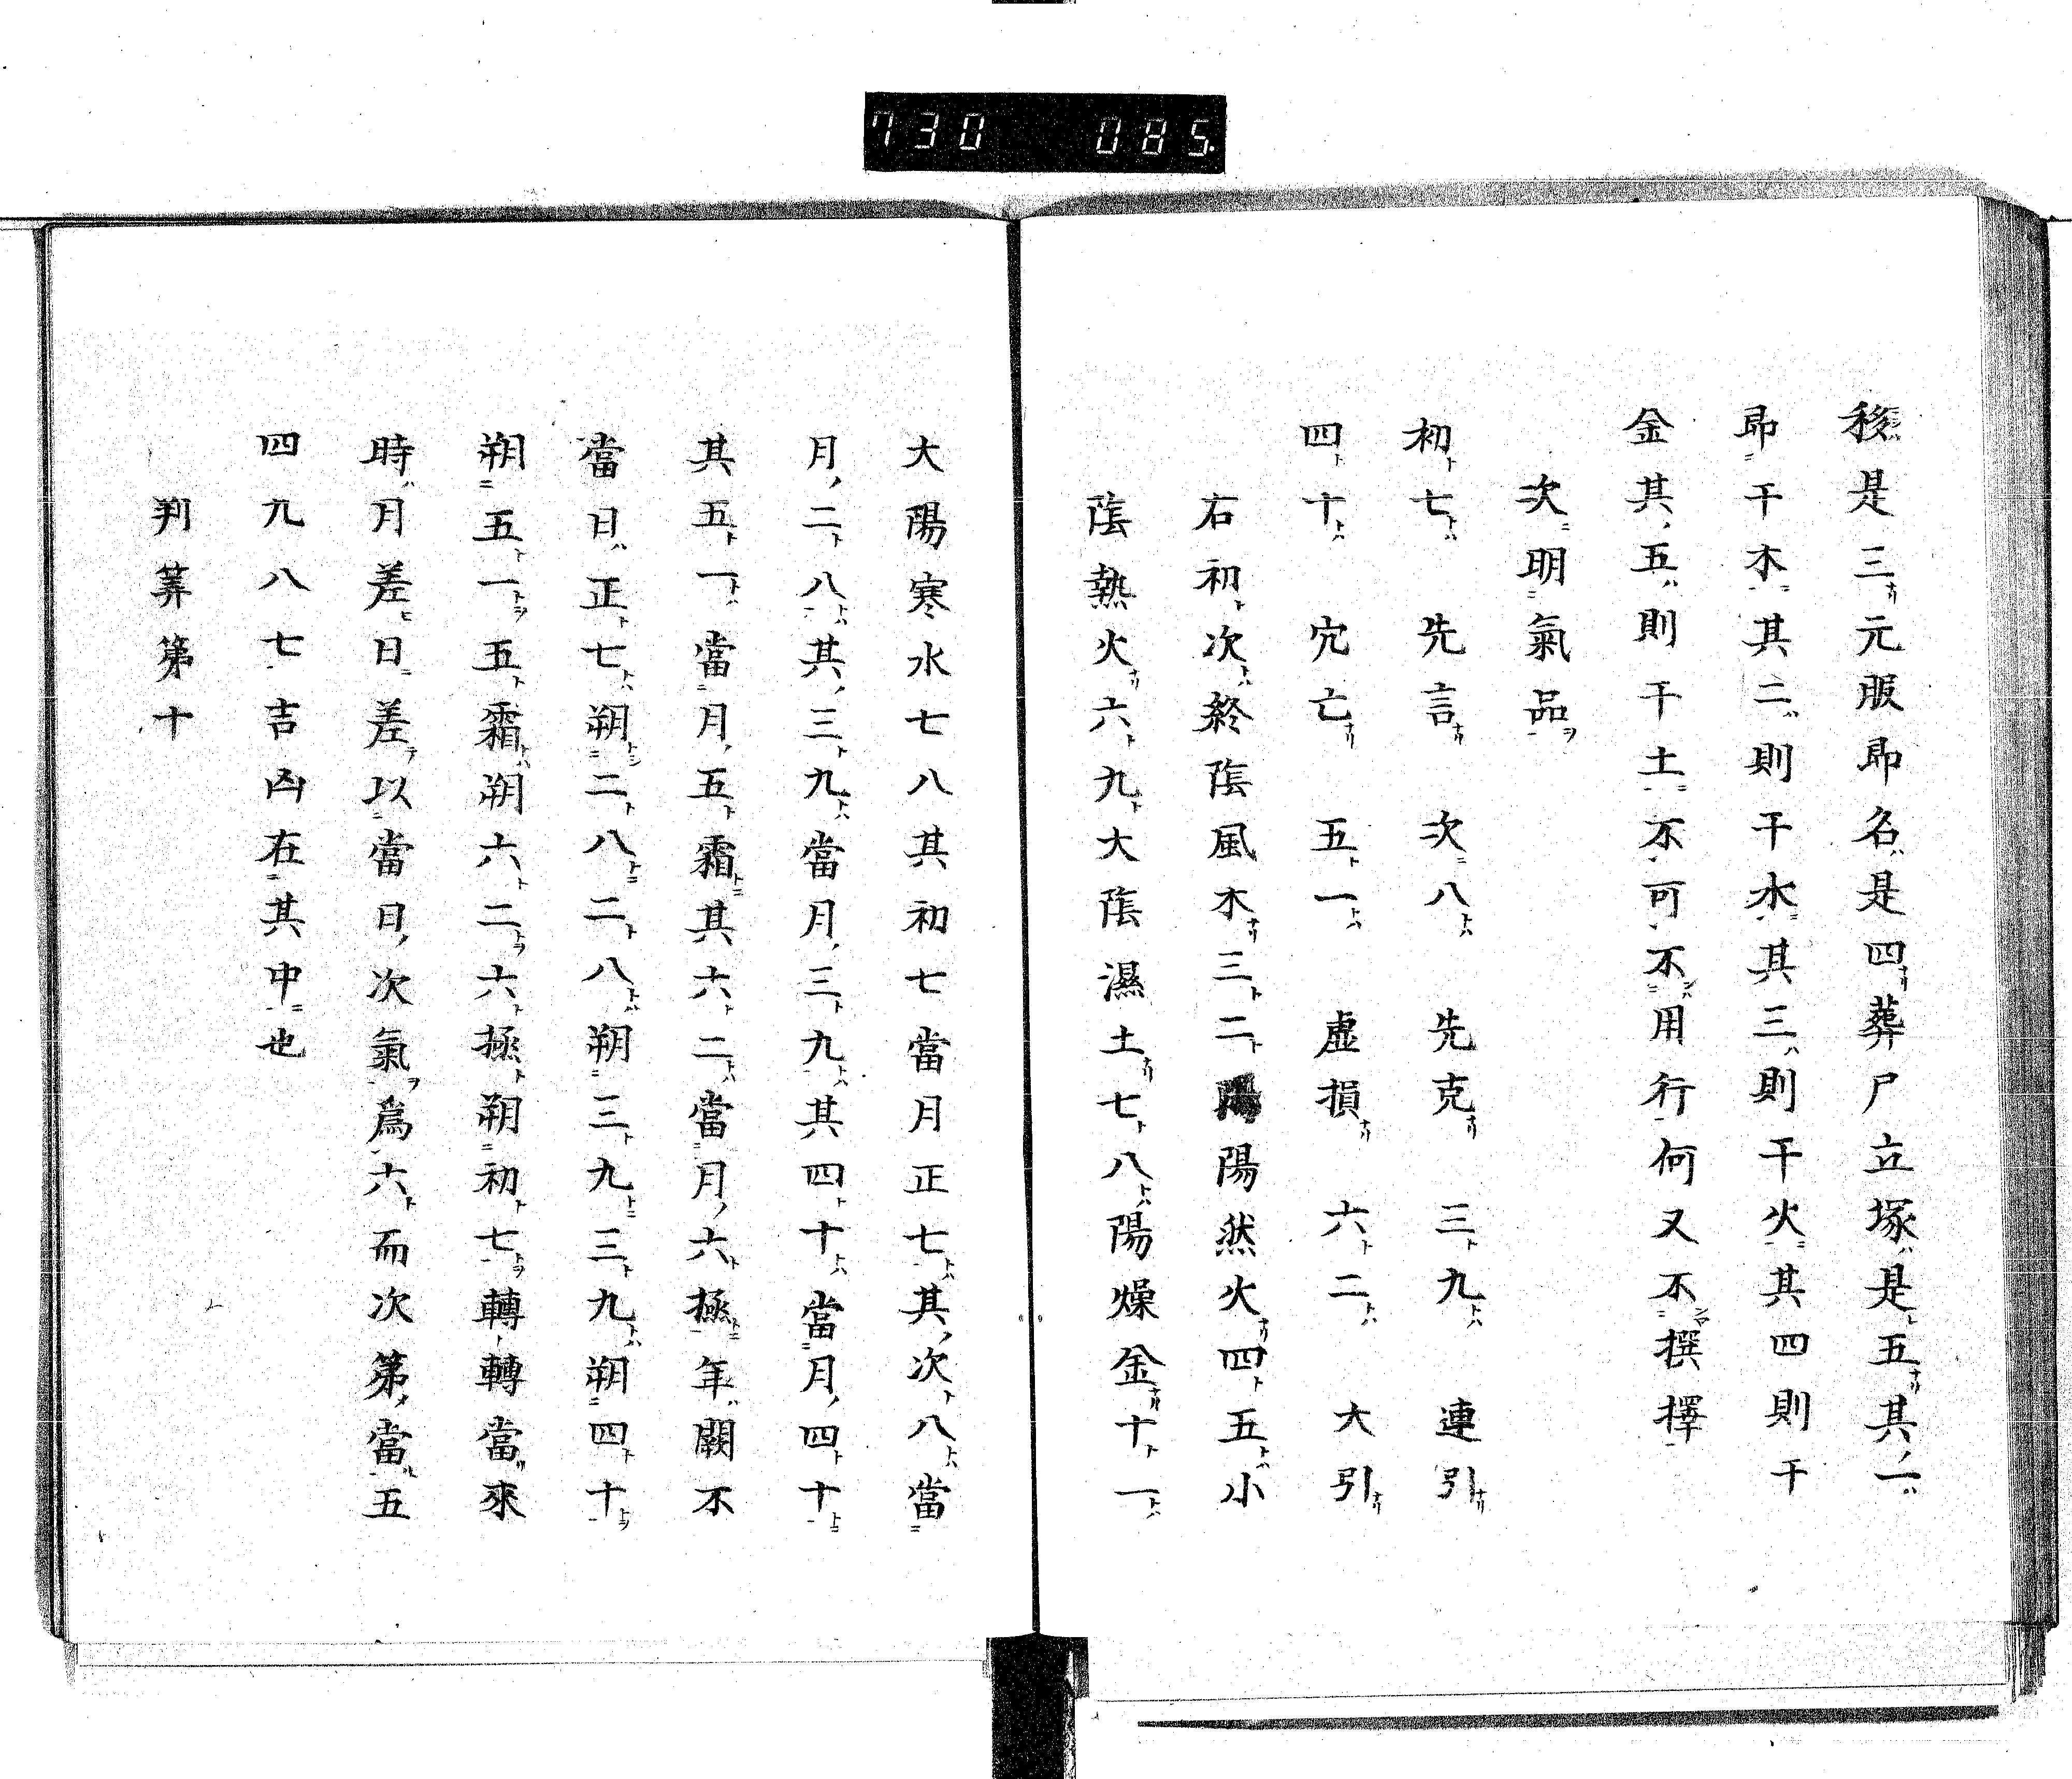 730 085
移是三元服即名是四葬尸立塚是五其一
即干木其二則干水其三則干火其四則干
金其五則干土不可不用行何又不撰擇
次明氣品
初七 先言 次八 先克 三九 連引
四十 宂亡 五一 虚損 六二 大引
右初次終陰風木三二陽陽然火四五小
陰熱火六九大陰濕土七八陽燥金十一
大陽寒水七八其初七當月正七其次八當
月二八其三九當月三九其四十當月四十
其五一當月五霜其六二當月六極年闕不
當日正七朔二八二八朔三九三九朔四十
朔五一五霜朔六二六極朔初七轉轉當來
時月差日差以當日次氣爲六而次第當五
四九八七吉凶在其中也
判葬第十